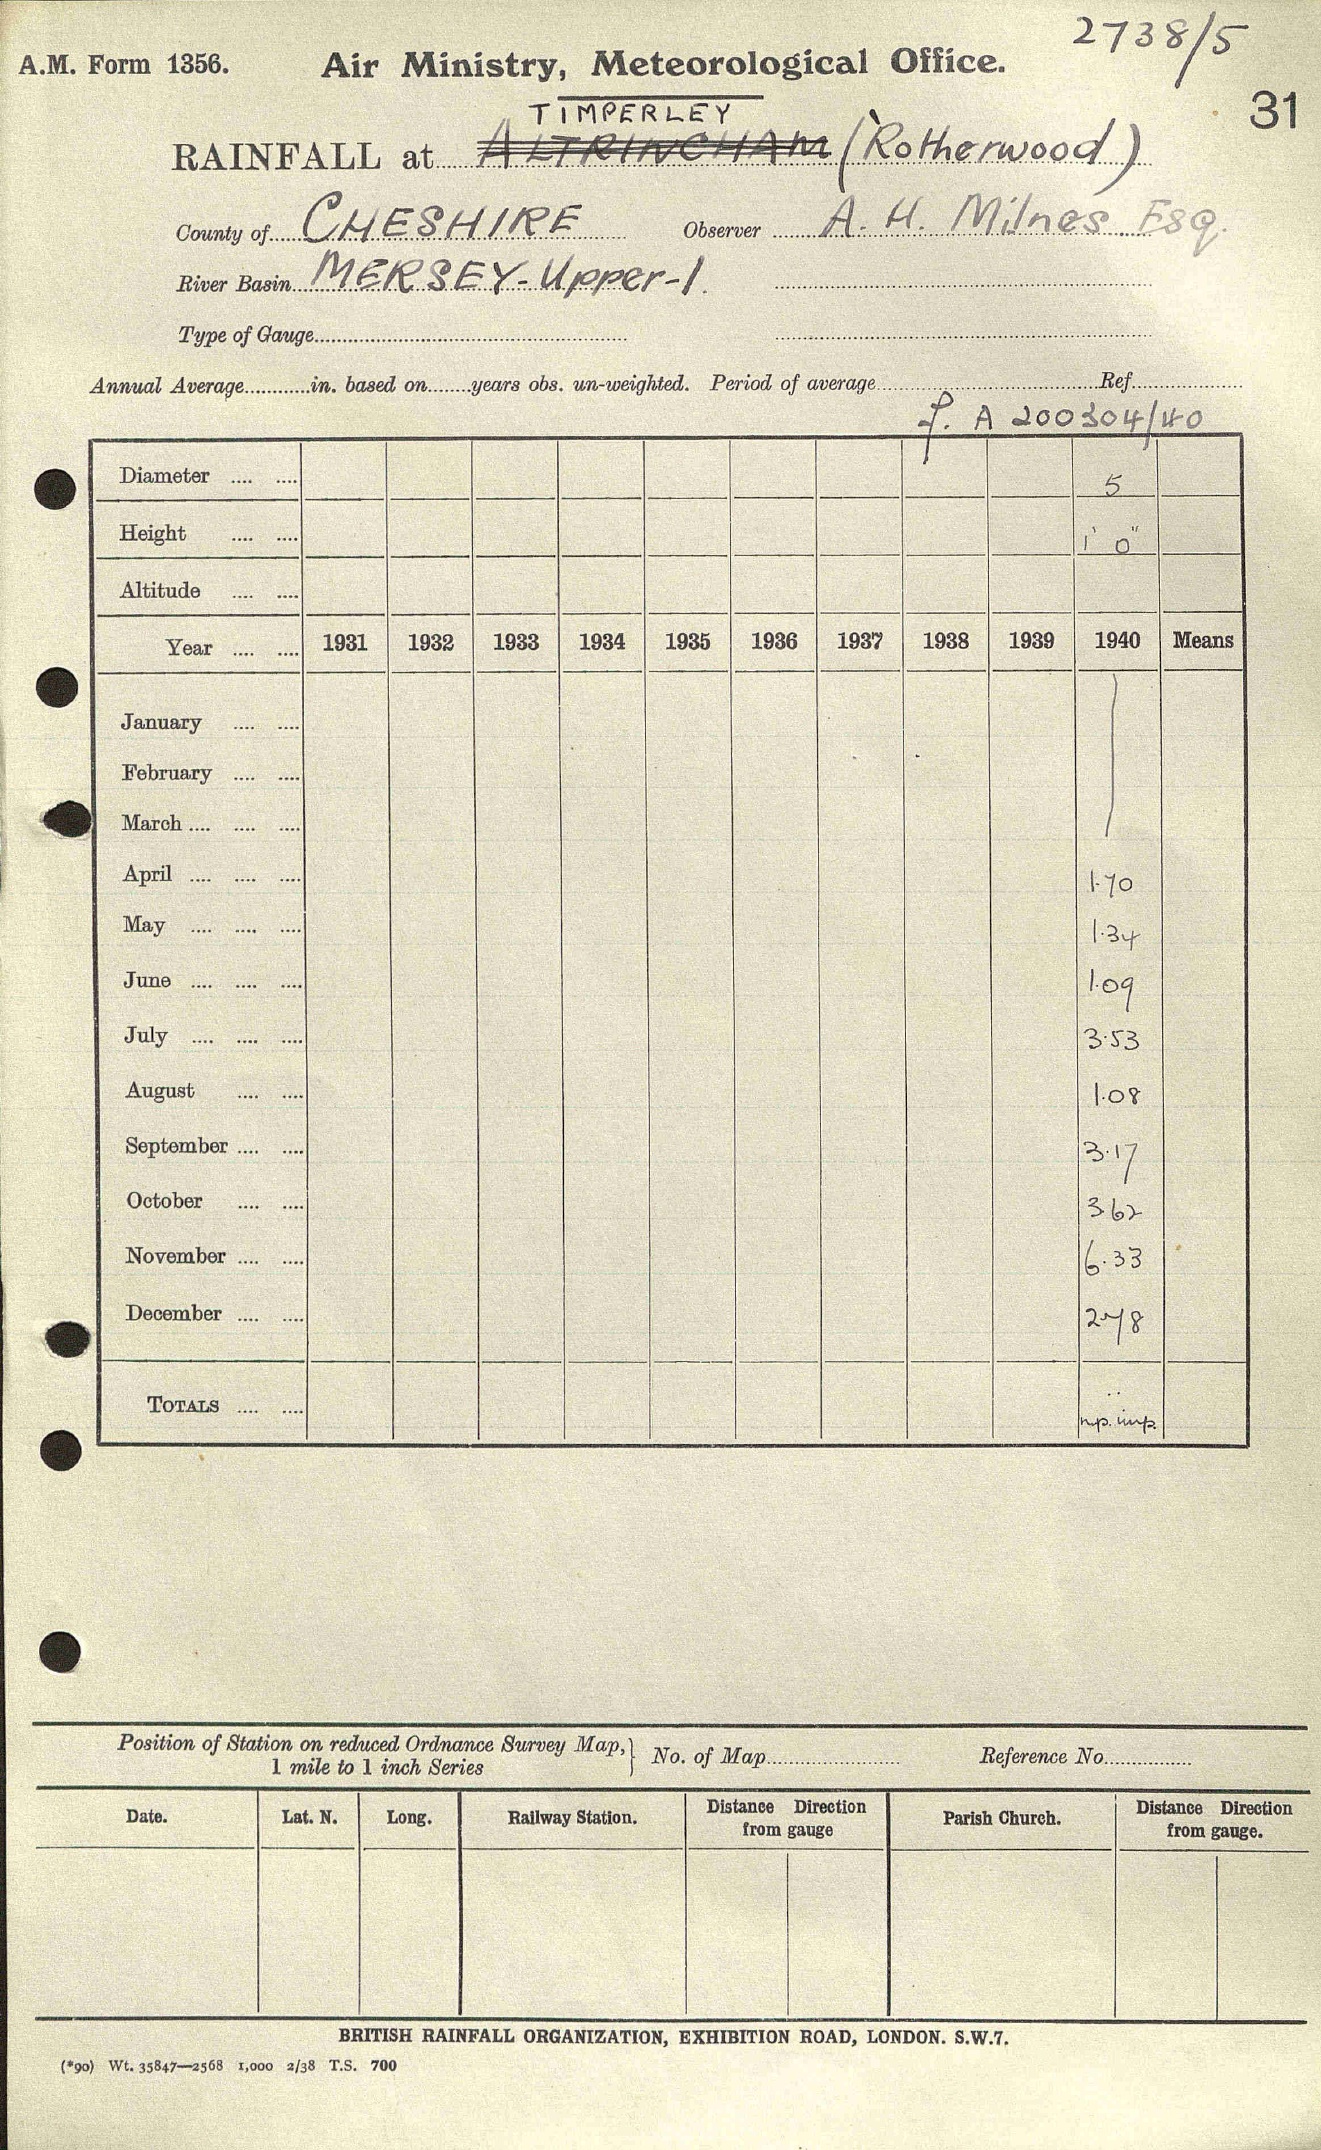 2738/5
A.M. Form 1356. Air Ministry, Meteorological Office.
31
TIMPERLEY
RAINFALL at ALTRINCHAM (Rotherwood)
County of CHESHIRE Observer A. H. Milnes Esq.
River Basin MERSEY-Upper-1.
Type of Gauge
Annual Average in. based on years obs. un-weighted. Period of average Ref.
f. A 200304/40
Diameter 5
Height 1' 0"
Altitude
Year 1931 1932 1933 1934 1935 1936 1937 1938 1939 1940 Means
January
February
March
April 1.70
May 1.34
June 1.09
July 3.53
August 1.08
September 3.17
October 3.62
November 6.33
December 2.78
TOTALS ..
n.p. imp.
Position of Station on reduced Ordnance Survey Map, } No. of Map Reference No.
1 mile to 1 inch Series
Date. Lat. N. Long. Railway Station. Distance Direction from gauge Parish Church. Distance Direction from gauge.
BRITISH RAINFALL ORGANIZATION, EXHIBITION ROAD, LONDON. S.W.7.
(*90) Wt. 35847—2568 1,000 2/38 T.S. 700